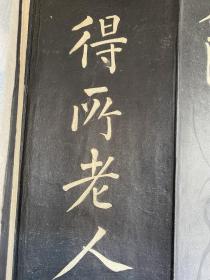 得所老人